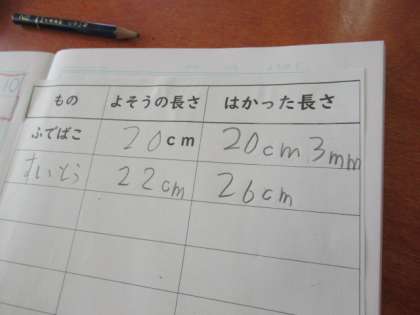 10
もの よそうの長さ はかった長さ
ふでばこ 20cm 20cm3mm
すいとう 22cm 26cm